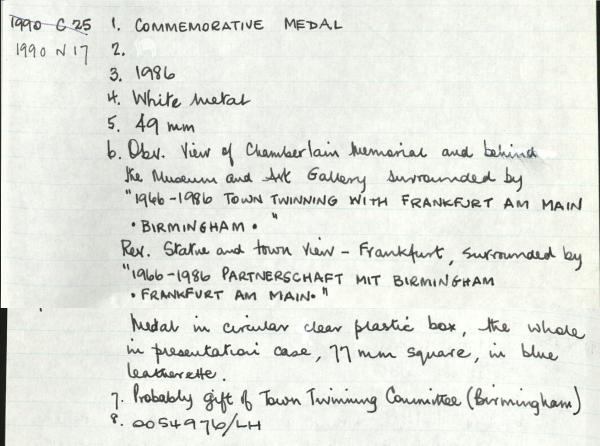 1990 C 25 1. COMMEMORATIVE MEDAL
1990 N 17 2.
3. 1986
4. White metal
5. 49 mm
6. Obv. View of Chamberlain Memorial and behind
the Museum and Art Gallery surrounded by
"1966-1986 TOWN TWINNING WITH FRANKFURT AM MAIN
• BIRMINGHAM • "
Rev. Statue and town view - Frankfurt, surrounded by
"1966-1986 PARTNERSCHAFT MIT BIRMINGHAM
• FRANKFURT AM MAIN• "
Medal in circular clear plastic box, the whole
in presentation case, 77 mm square, in blue
leatherette.
7. Probably gift of Town Twinning Committee (Birmingham)
8. 0054976/LH